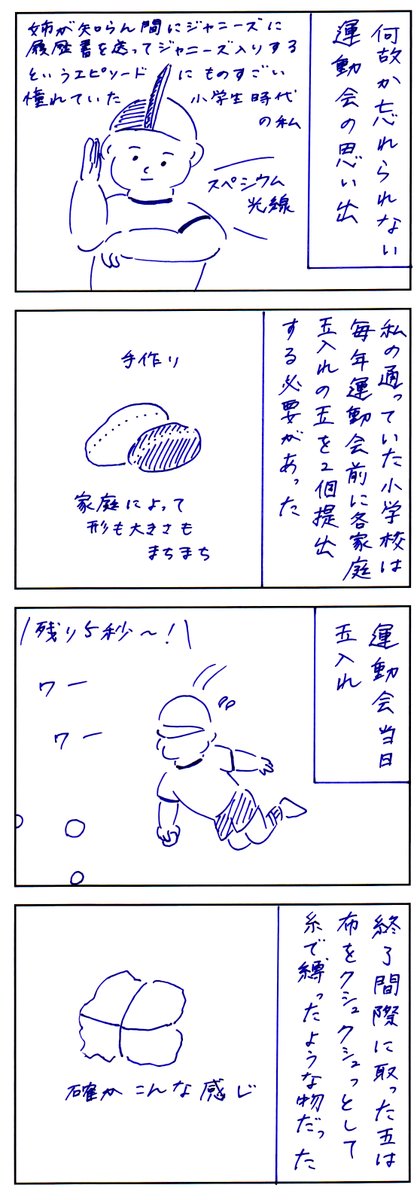 何故か忘れられない
運動会の思い出
姉が知らん間にジャニーズに
履歴書を送ってジャニーズ入りする
というエピソードにものすごい
憧れていた 小学生時代
の私
スペシウム
光線
私の通っていた小学校は
毎年運動会前に各家庭
玉入れの玉を2個提出
する必要があった
手作り
家庭によって
形も大きさも
まちまち
運動会当日
玉入れ
残り5秒〜!
ワー
ワー
終了間際に取った玉は
布をクシュクシュっとして
糸で縛ったような物だった
確かこんな感じ